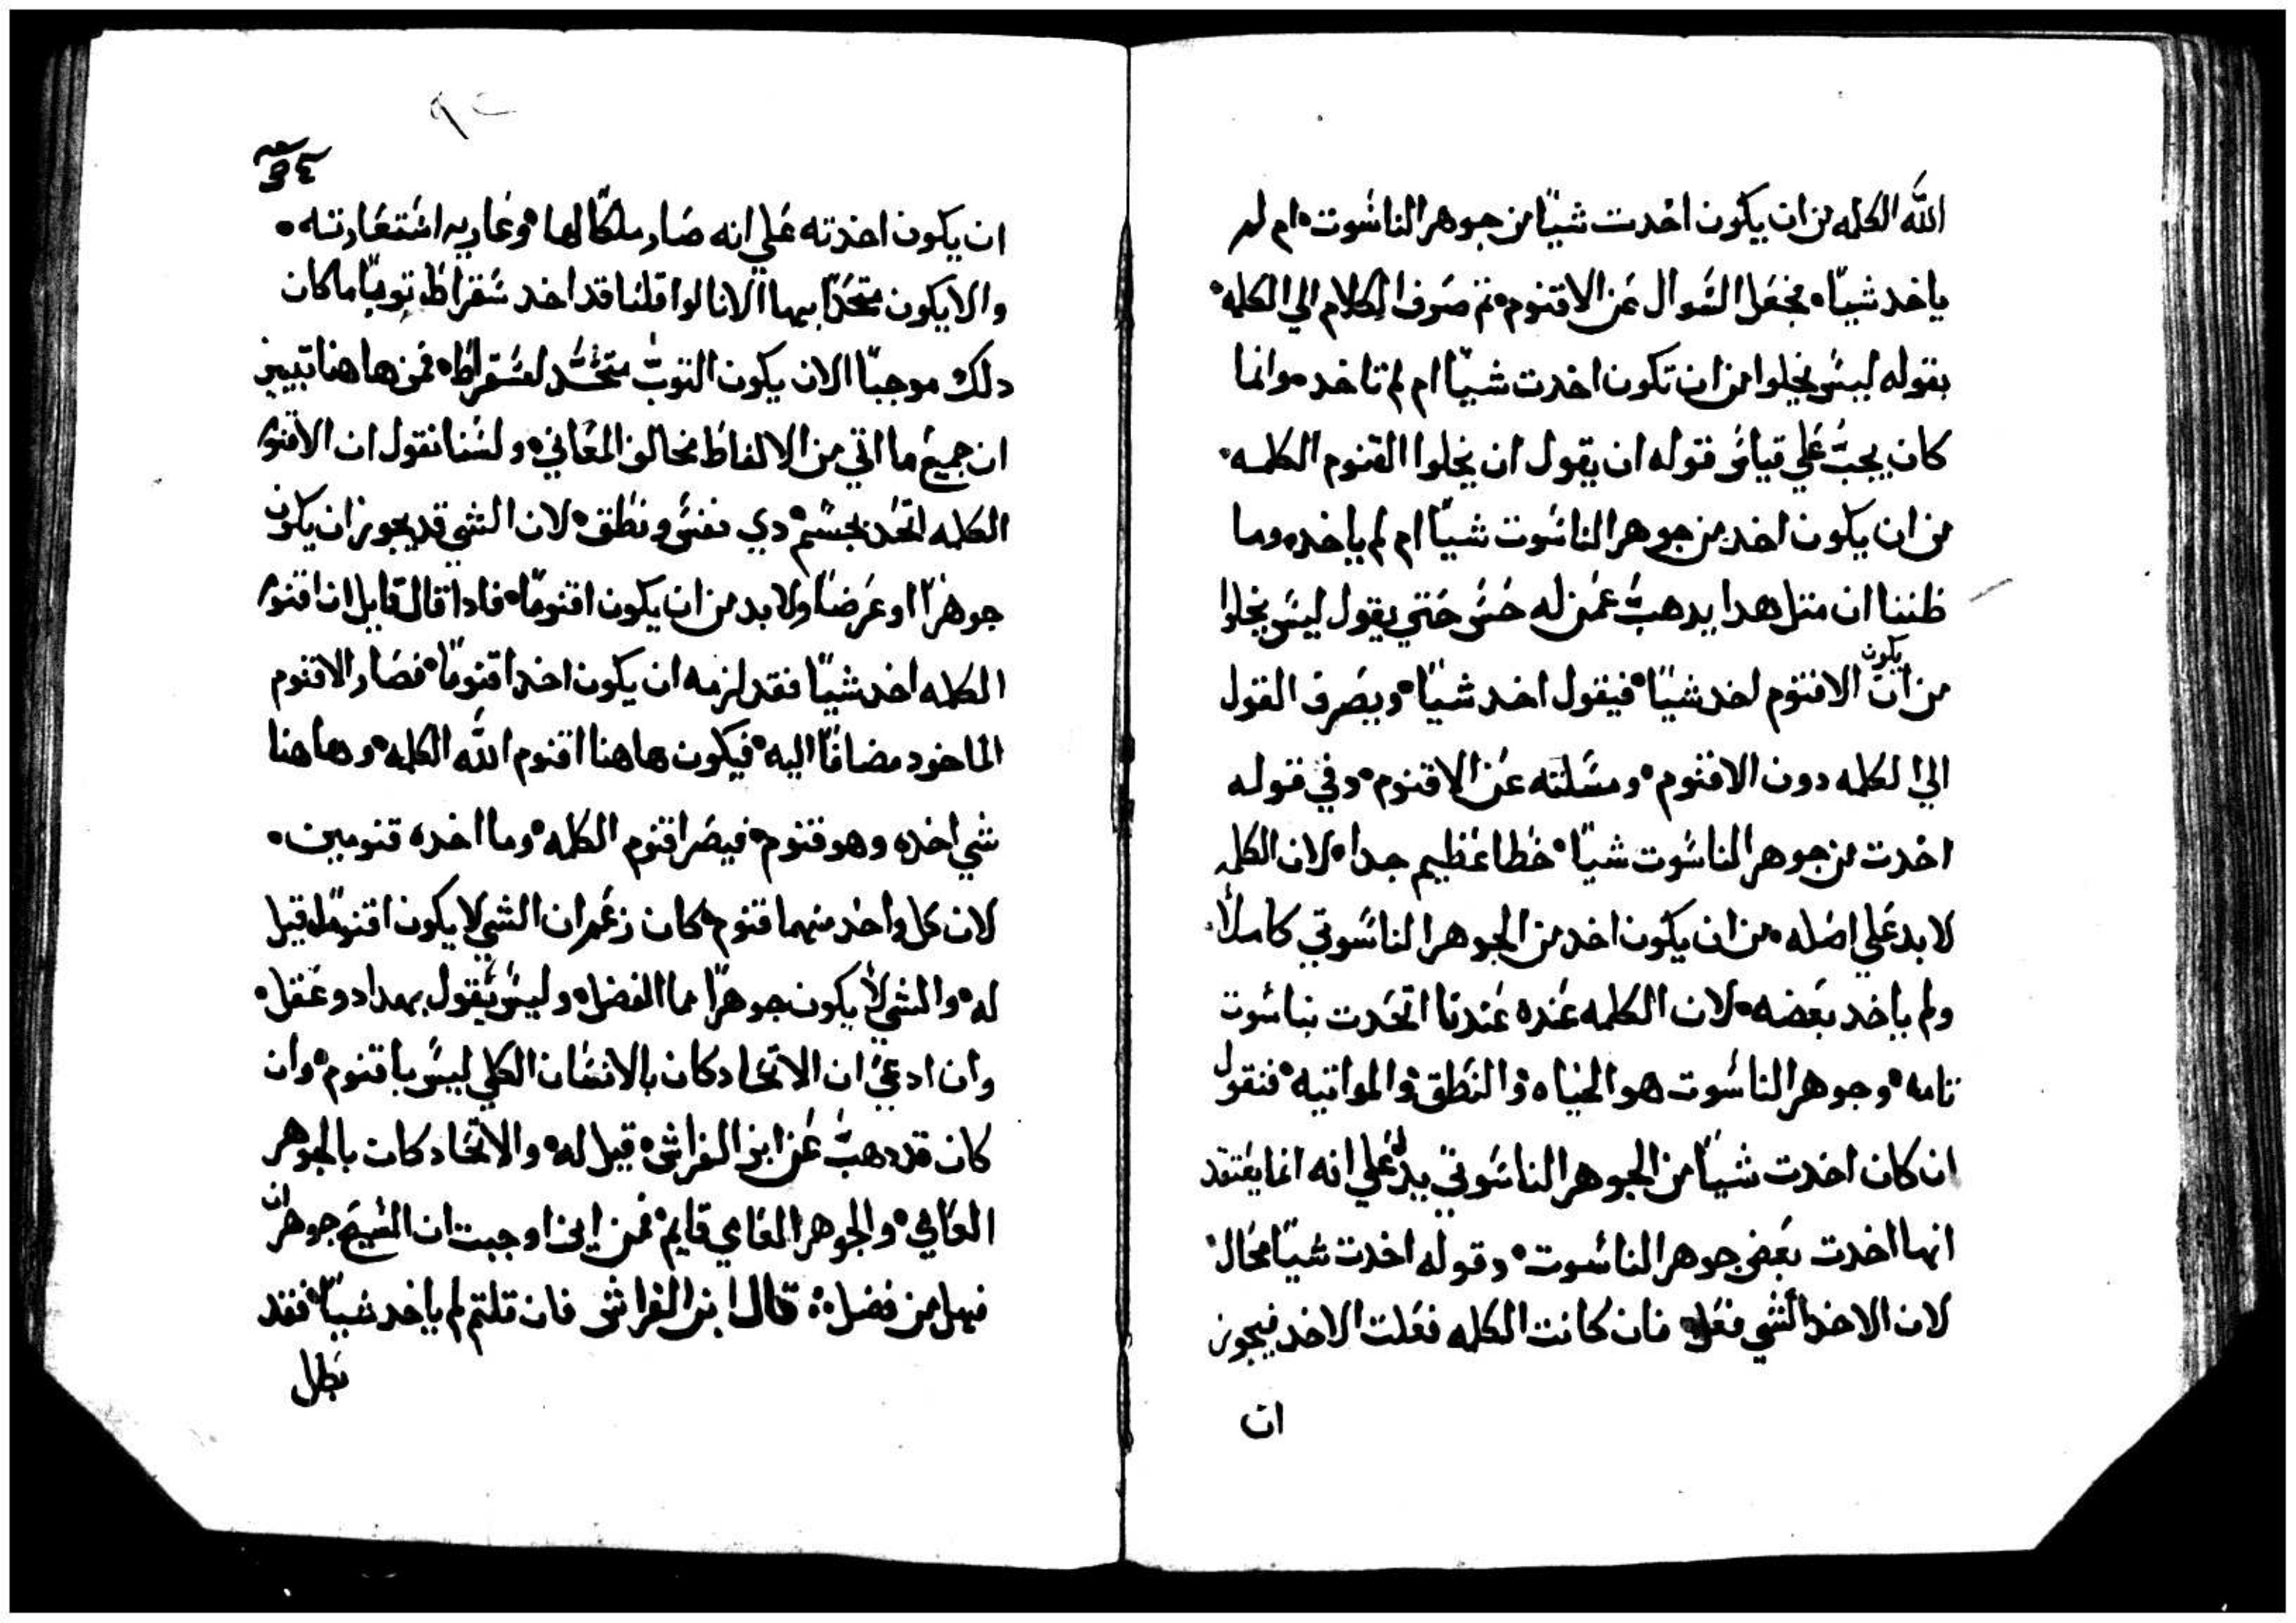 الله الكلمه من ان يكون اخدت شيًا من جوهر الناسوت ام لم
ياخد شيًا فجعل السوال عن الاقنوم ثم صرف الكلام الي الكلمه
بقوله ليس يخلوا من ان تكون اخدت شيًا ام لم تاخد وانما
كان يجب علي قياس قوله ان يقول ان يخلوا القنوم الكلمه
من ان يكون اخد من جوهر الناسوت شيًا ام لم ياخد وما
ظننا ان مثل هدا يدهب عمن له حس حتي يقول ليس يخلوا
من ان يكون الاقنوم اخد شيًا فيقول اخد شيًا ويصرف القول
الي الكلمه دون الاقنوم ومسلته عن الاقنوم وفي قوله
اخدت من جوهر الناسوت شيًا خطا عظيم جدا لان الكلمه
لا بد علي اصله من ان يكون اخد من الجوهر الناسوتي كاملاً
ولم ياخد بعضه لان الكلمه عنده عندنا اتحدت بناسوت
تامه وجوهر الناسوت هو الحياه والنطق والمواتيه فنقول
ان كان اخدت شيًا من الجوهر الناسوتي يدل علي انه انما يعتقد
انها اخدت بعض جوهر الناسوت وقوله اخدت شيًا محال
لان الاخد الشي فعل فان كانت الكلمه فعلت الاخد فيجوز
ان
٣٤
ان يكون اخدته علي انه صار ملكًا لها وعاريه استعارته
والا يكون متحدًا بها الانا لوا قلنا قد اخد سقراط ثوبًا ما كان
دلك موجبًا الان يكون التوب متحد لسقراط فمن هاهنا تبين
ان جميع ما اتي من الالفاظ مخالف المعاني ولسنا نقول ان الاقنوم
الكلمه اتحد بجسم دي نفس ونطق لان الشي قد يجوز ان يكون
جوهرًا او عرضًا ولا بد من ان يكون اقنومًا فادا قال قايل ان اقنوم
الكلمه اخد شيًا فقد لزمه ان يكون اخد اقنومًا فصار الاقنوم
الماخود مضافًا اليه فيكون هاهنا اقنوم الله الكلمه وهاهنا
شي اخده وهو قنوم فيصر اقنوم الكلمه وما اخده قنومين
لان كل واحد منهما قنوم كان زعم ان الشي لا يكون اقنومًا قيل
له والشي لا يكون جوهرًا مما الفضل وليس يقول بهدا دو عقل
وان ادعي ان الاتحاد كان بالانسان الكلي ليس باقنوم وان
كان قد دهب عن ابن الفراش قيل له والاتحاد كان بالجوهر
العامي والجوهر العامي قايم فمن اين اوجبت ان المسيح جوهران
فهل من فضل قال ابن الفراش فان قلتم لم ياخد شيًا فقد
بطل